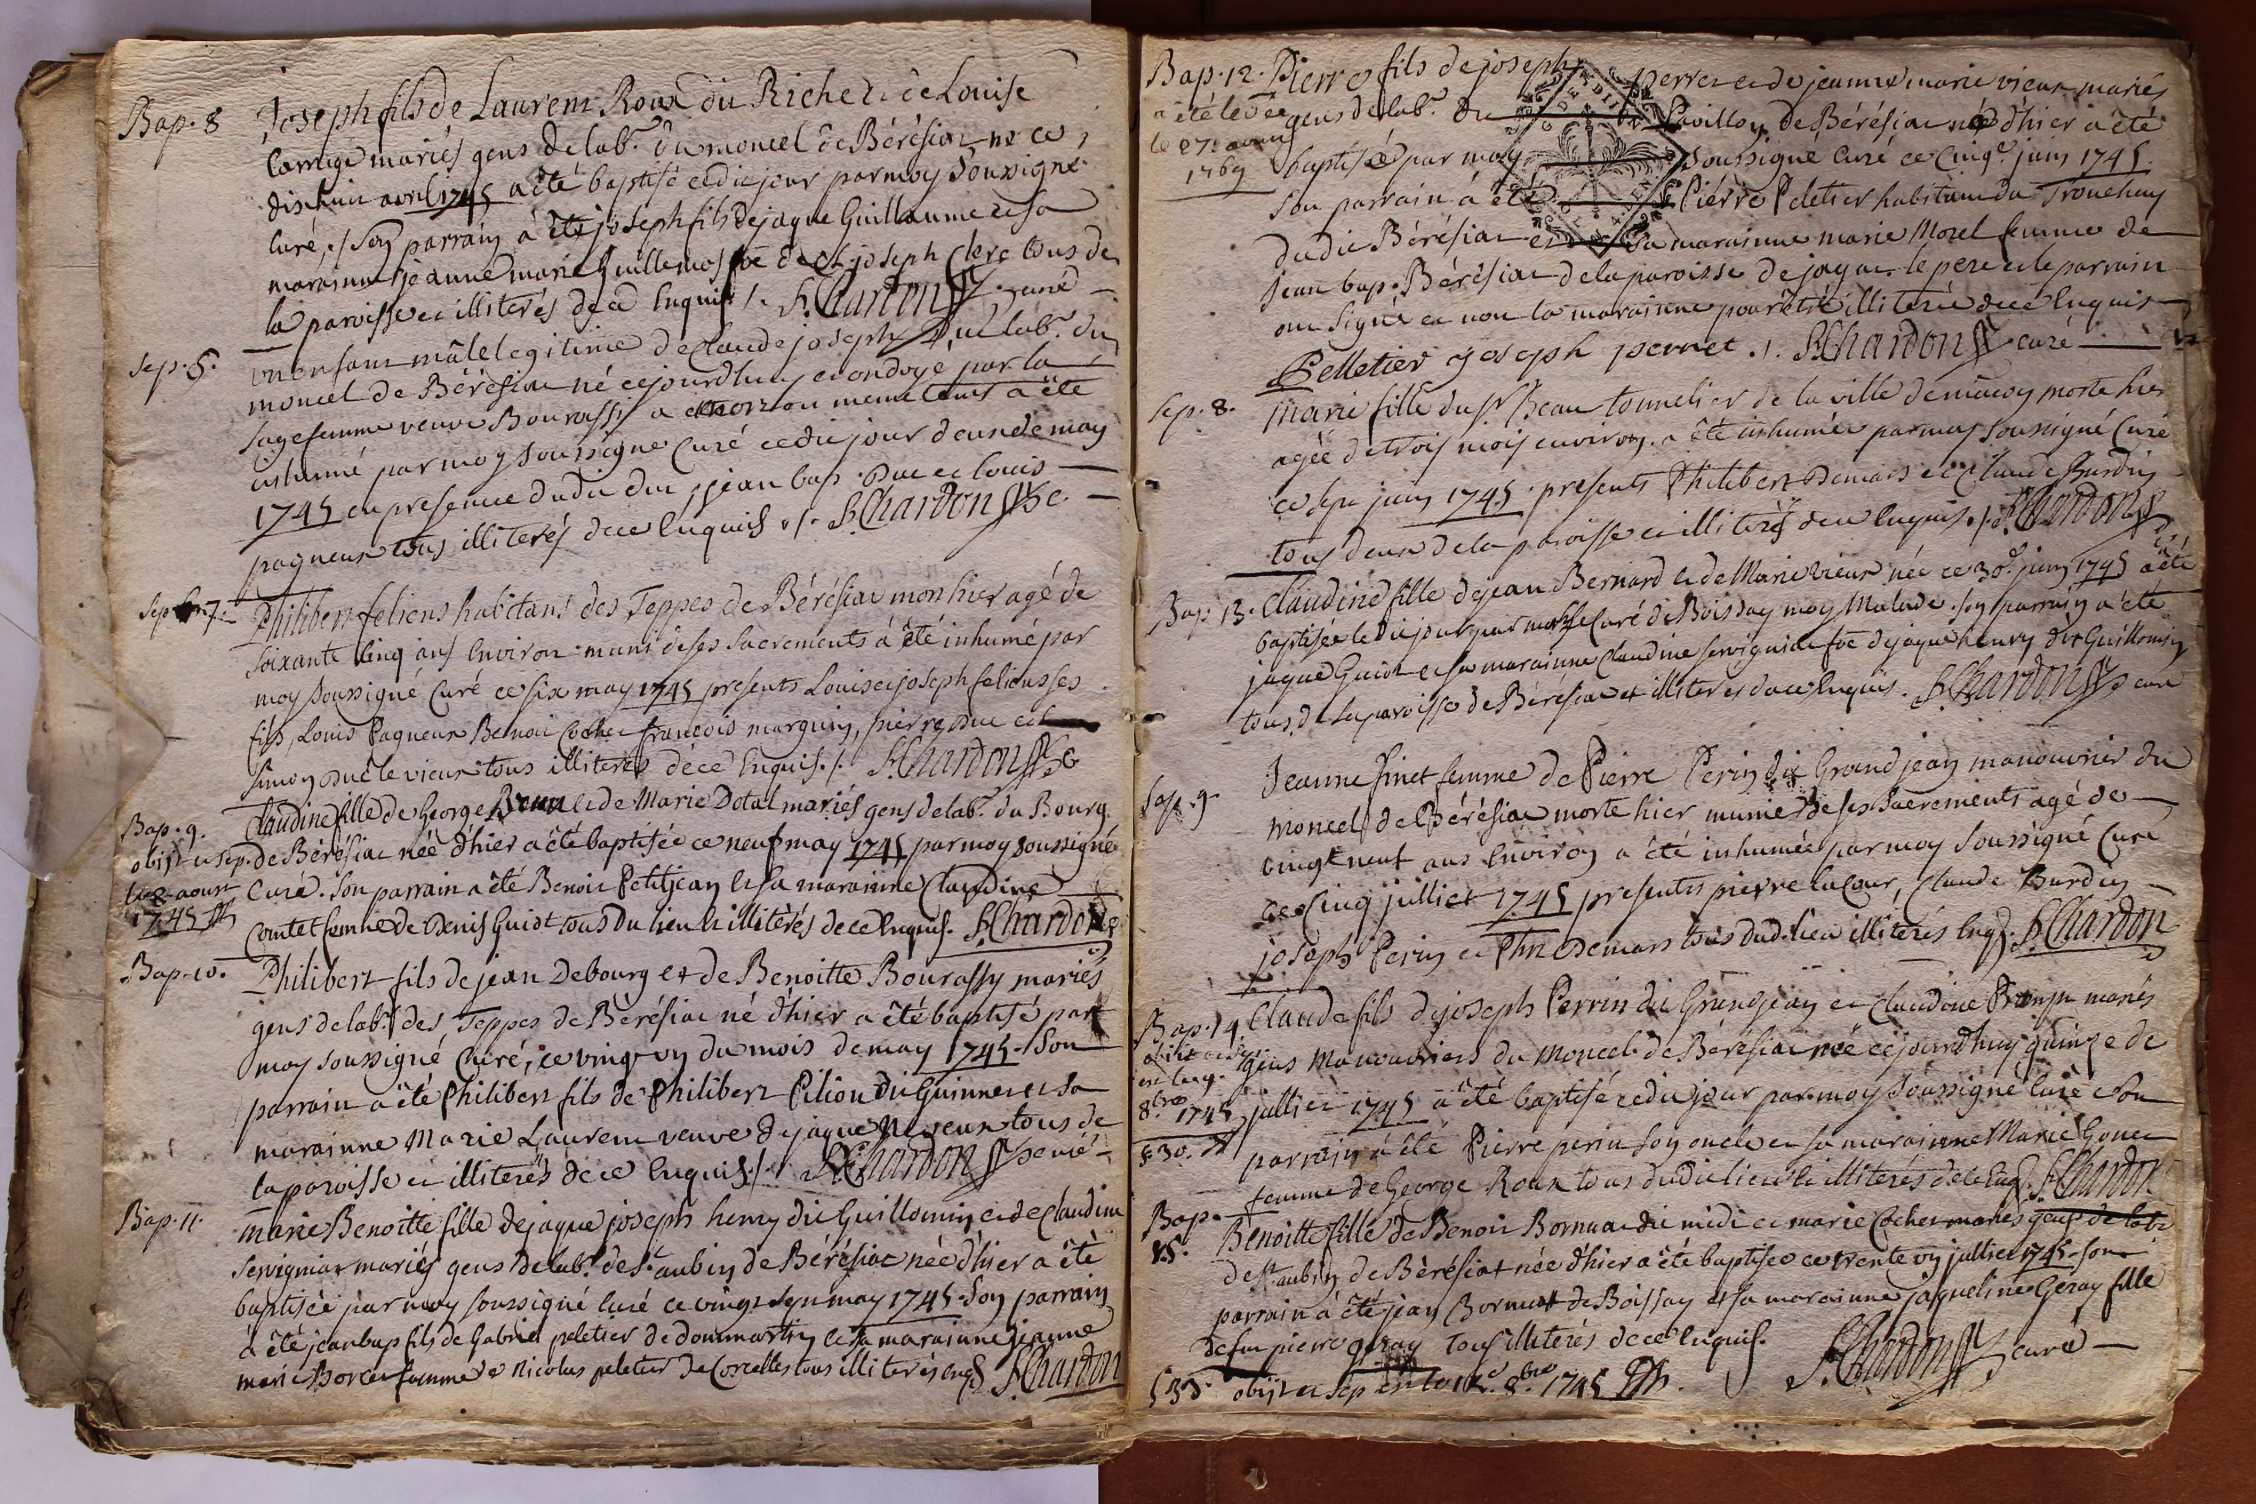 Bap. 8
Joseph fils de Laurent Roux du Richer et de Louise
Carrige mariés gens de lab.r du moncel de Bérésiat né ce
dixhuit avril 1745 a été baptisé cedit jour par moy soussigné
curé, ./ Son parrain à été joseph fils de jaque Guillaume et sa
marainne jeanne marie Guillemos fe de joseph Clerc tous de
la paroisse et illiterés de ce Enquis /. F. Chardon curé
Sep. 5.
un enfant mâle legitime de Claude joseph Duc lab.r du
moncel de Bérésiat né cejourdhuy et ondoyé par la
sagefemme veuve Bourassy a été
inhumé par moy soussigné Curé cedit jour deux de may
1745 en presence dudit duc, jean bap. Duc et louis
pagneux tous illiterés de ce Enquis ./. F. Chardon C.
Sep. 7.
Philibert feliens habitant des Teppes de Bérésiat mort hier agé de
soixante cinq ans Environ muni de ses sacrements à été inhumé par
moy soussigné Curé ce six may 1745 presents Louis et joseph feliens ses
fils, Louis Pagneux Benoit Cochet francois marguin, pierre Duc et
Simon Duc le vieux tous illiterés de ce Enquis ./. F. Chardon C
Bap. 9.
obijt et sep.
le 2 aoust
1745
Claudine fille de George Brun et de Marie Dotal mariés gens de lab.r du Bourg
de Bérésiat née d'hier a été baptisée ce neuf may 1745 par moy soussigné
Curé. Son parrain a été Benoit Petitjean et sa marainne Claudine
Comtet femme de Denis Guiot tous du lieu et illiterés de ce Enquis. F. Chardon
Bap. 10.
Philibert fils de jean Debourg et de Benoitte Bourassy mariés
gens de lab.r des Teppes de Bérésiat né d'hier a été baptisé par
moy soussigné Curé, ce vingt un du mois de may 1745. Son
parrain a été Philibert fils de Philibert Pilion du Guinner et sa
marainne Marie Laurent veuve de jaque Neveux tous de
la paroisse et illiterés de ce Enquis ./. F. Chardon curé
Bap. 11.
marie Benoitte fille de jaque joseph henry dit Guillomin et de Claudine
Servigniat mariés gens de lab.r de S.t aubin de Bérésiat née d'hier a été
baptisée par moy soussigné curé ce vingt sept may 1745. Son parrain
à été jean bap fils de Gabriel peletier de dommartin et sa marainne jeanne
marie Borcer femme de Nicolas peletier de Corcelles tous illiterés Enq. F. Chardon
Bap. 12.
a été levée
le 27
1769
Pierre fils de joseph perret et de jeanne marie vieux mariés
gens de lab.r du Pavillon de Bérésiat né d'hier a été
baptisé par moy soussigné Curé ce cinq.e juin 1745.
Son parrain à été Piérre Peletier habitant du Tronchay
dudit Bérésiat et sa marainne marie Morel femme de
jean bap. Bérésiat de la paroisse de jayat le pere et le parrain
ont signé et non la marainne pour être illiterée de ce Enquis
Pelletier joseph perret ./. F. Chardon curé
Sep. 8.
marie fille du S.r Beau tonnelier de la ville de mâcon morte hier
agée de trois mois environ a été inhumée par moy soussigné Curé
ce sept juin 1745. presents Philibert Demars et Claude Burdin
tous deux de la paroisse et illiterés de ce Enquis ./. F. Chardon
Bap. 13.
Claudine fille de jean Bernard et de Marie vieux née ce 30.e juin 1745 a été
baptisée ledit jour par mons.r le Curé de Boissay moy Malade. son parrain a été
jaque Guiot et sa marainne Claudine servigniat fe de jaque henry dit Guillomin
tous de la paroisse de Bérésiat et illiteres de ce Enquis. F. Chardon curé
Sep. 9.
Jeanne Pinet femme de Pierre Perin dit Grandjean manouvrier du
moncel de Bérésiat morte hier munie de ses sacrements agé de
vingt neuf ans Environ a été inhumée par moy soussigné Curé
ce cinq julliet 1745 presents pierre lacour, Claude Burdin
joseph Perin et Phi. Demars tous dud. lieu illiterés Enq. F. Chardon
Bap. 14.
8.bre 1745
f 30.
Claude fils de joseph Perrin dit Grangjean et Claudine mariés
gens Manouvriers du Moncel de Bérésiat né cejourdhuy quinze de
jullier 1745 a été baptisé cedit jour par moy soussigné Curé Son
parrain à été Pierre perin son oncle et sa marainne Marie Gonet
femme de George Roux tous dudit lieu et illiterés de ce Enq. F. Chardon
Bap.
15.
Benoitte fille de Benoit Bornuat dit midi et marie Cochet mariés gens de lab.r
de S.t aubin de Bérésiat née d'hier a été baptisée ce trente un jullier 1745. son
parrain à été jean Bornuat de Boissay et sa marainne jaqueline Geray fille
de feu pierre geray tous illiterés de ce Enquis. F. Chardon curé
f 33. obijt et sep est le 8.bre 1745